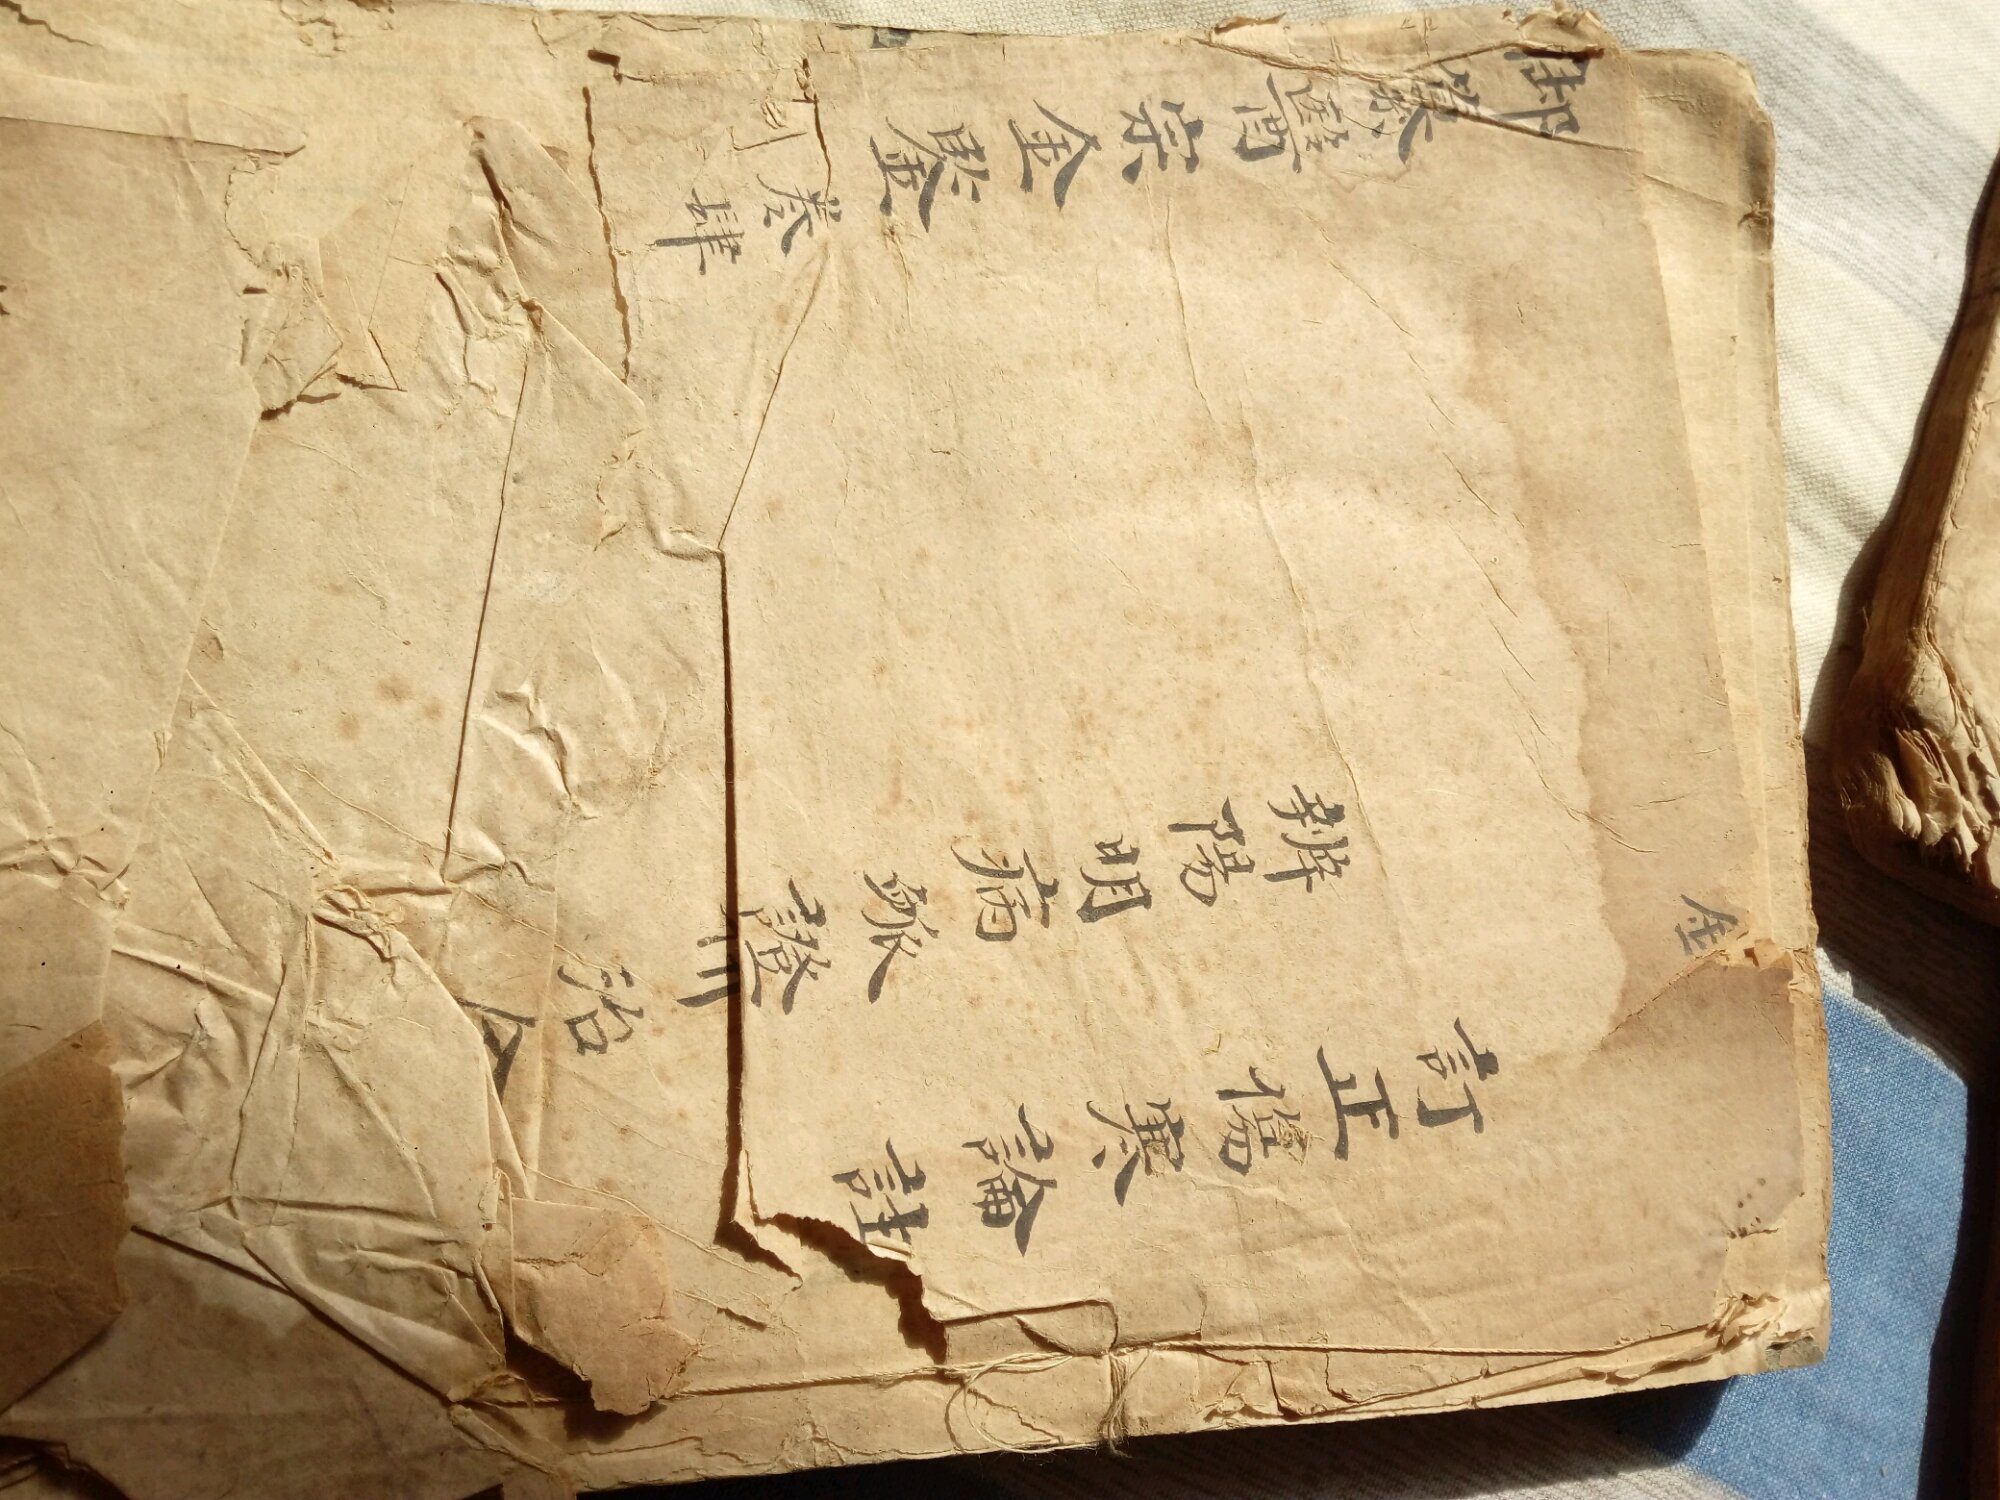 訂正傷寒論註
金
辨陽明病脉證并治
御纂醫宗金鋻
卷肆